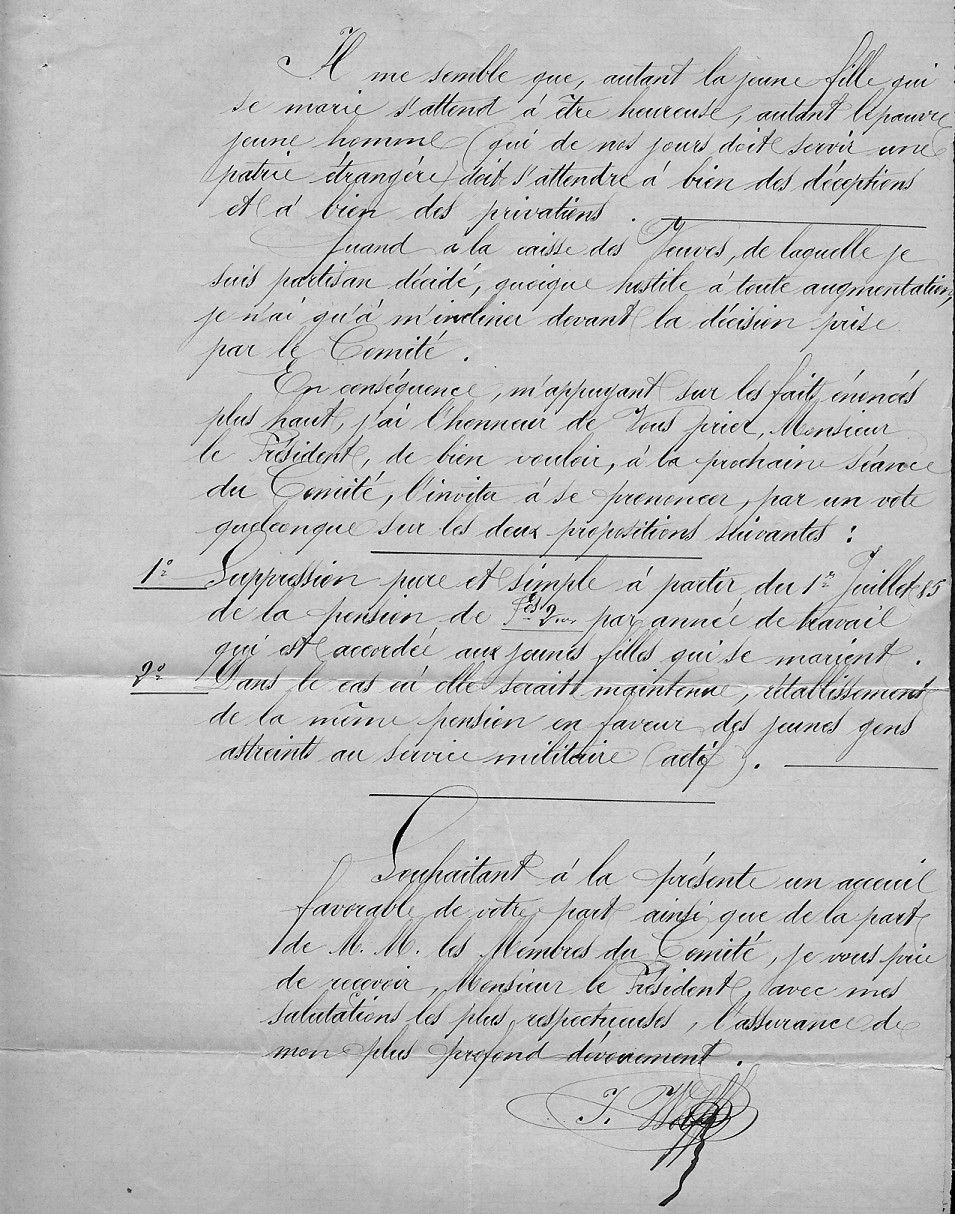 Il me semble que, autant la jeune fille qui
se marie s'attend à être heureuse, autant le pauvre
jeune homme (qui de nos jours doit servir une
patrie étrangère) doit s'attendre à bien des déceptions
et à bien des privations.
Quand à la caisse des Veuves, de laquelle je
suis partisan décidé, quoique hostile à toute augmentation,
je n'ai qu'à m'incliner devant la décision prise
par le Comité.
En conséquence, m'appuyant sur les faits énoncés
plus haut, j'ai l'honneur de Vous prier, Monsieur
le Président, de bien vouloir, à la prochaine séance
du Comité, l'invita à se prononcer, par un vote
quelconque sur les deux propositions suivantes :
1° Suppression pure et simple à partir du 1er Juillet 85
de la pension de 2 par année de travail
qui est accordée aux jeunes filles qui se marient.
2° Dans le cas où elle serait maintenue, rétablissement
de la même pension en faveur des jeunes gens
astreints au service militaire (actif).
Souhaitant à la présente un acceuil
favorable de votre part ainsi que de la part
de M. M. les Membres du Comité, je vous prie
de recevoir, Monsieur le Président, avec mes
salutations les plus respectueuses, l'assurance de
mon plus profond dévouement.